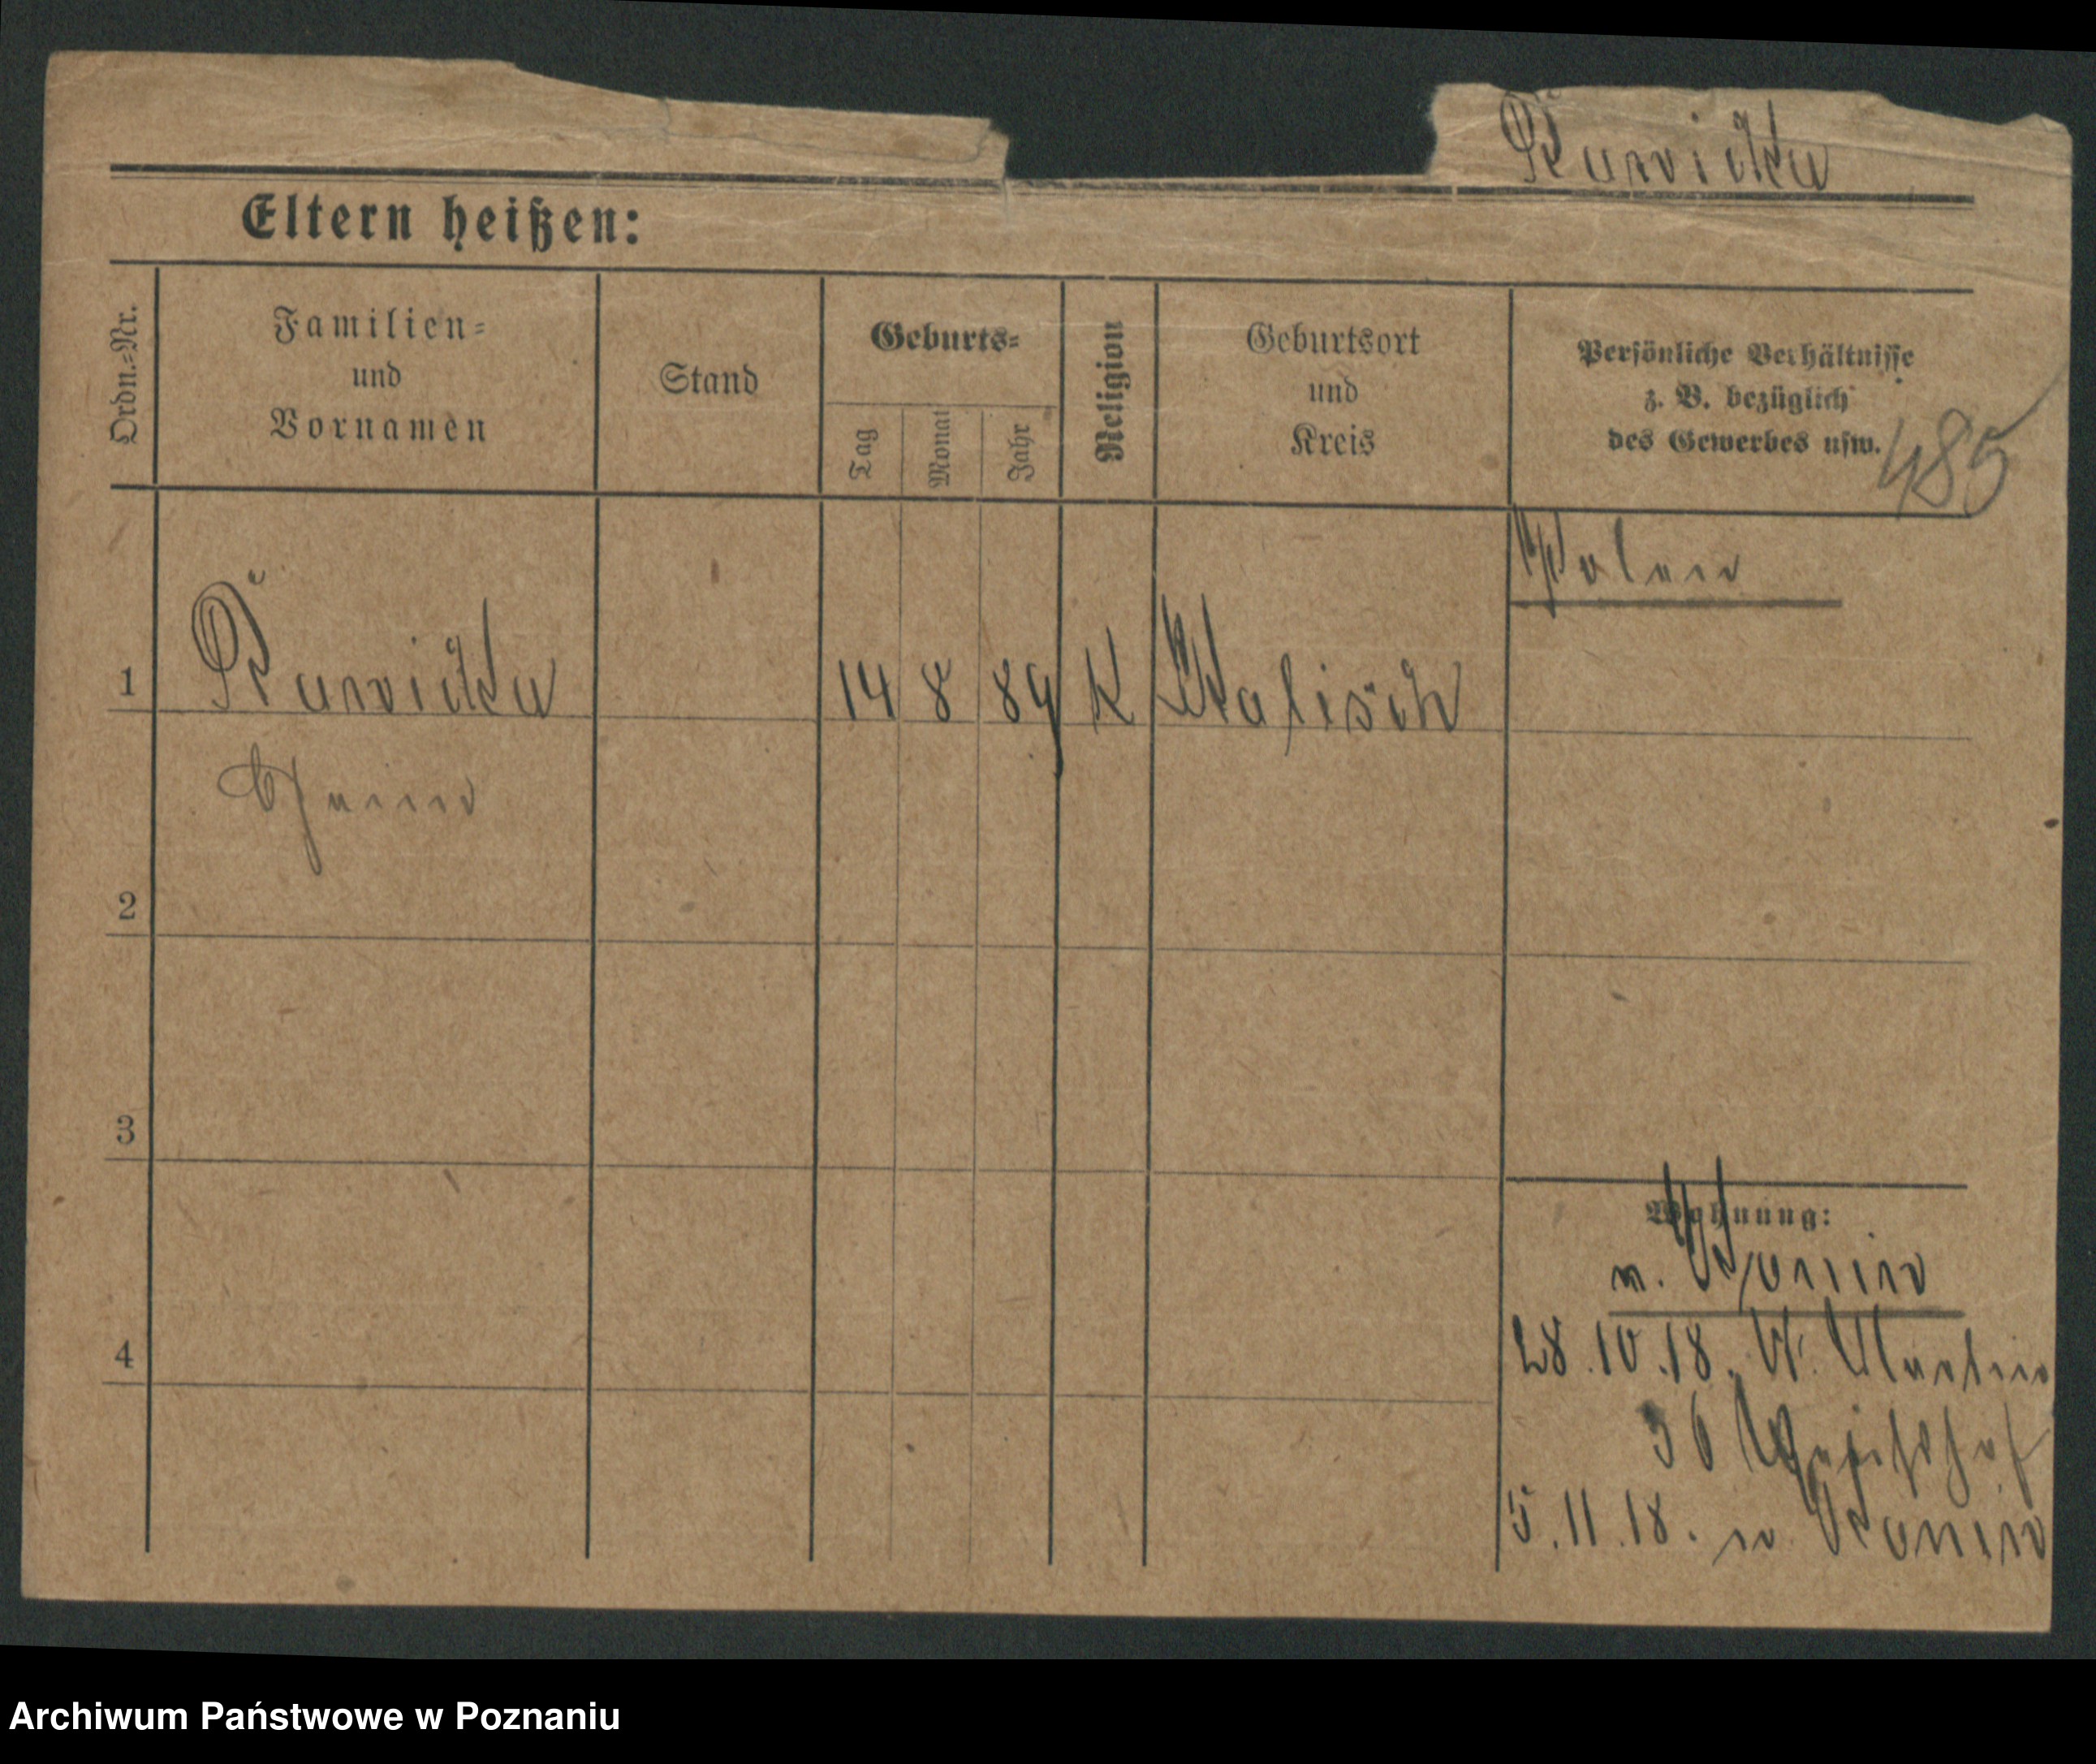 Eltern heißen:
Ordn.=Nr.
Familien=
und
Vornamen
Stand
Geburts=
Tag
Monat
Jahr
Religion
Geburtsort
und
Kreis
Persönliche Verhältnisse
z. B. bezüglich
des Gewerbes usw.
485
Polen
1
14 8 89 K Kalisch
2
3
Wohnung:
n. Konin
4
28.10.18. St. Martin
36
5.11.18. n. Konin
Archiwum Państwowe w Poznaniu